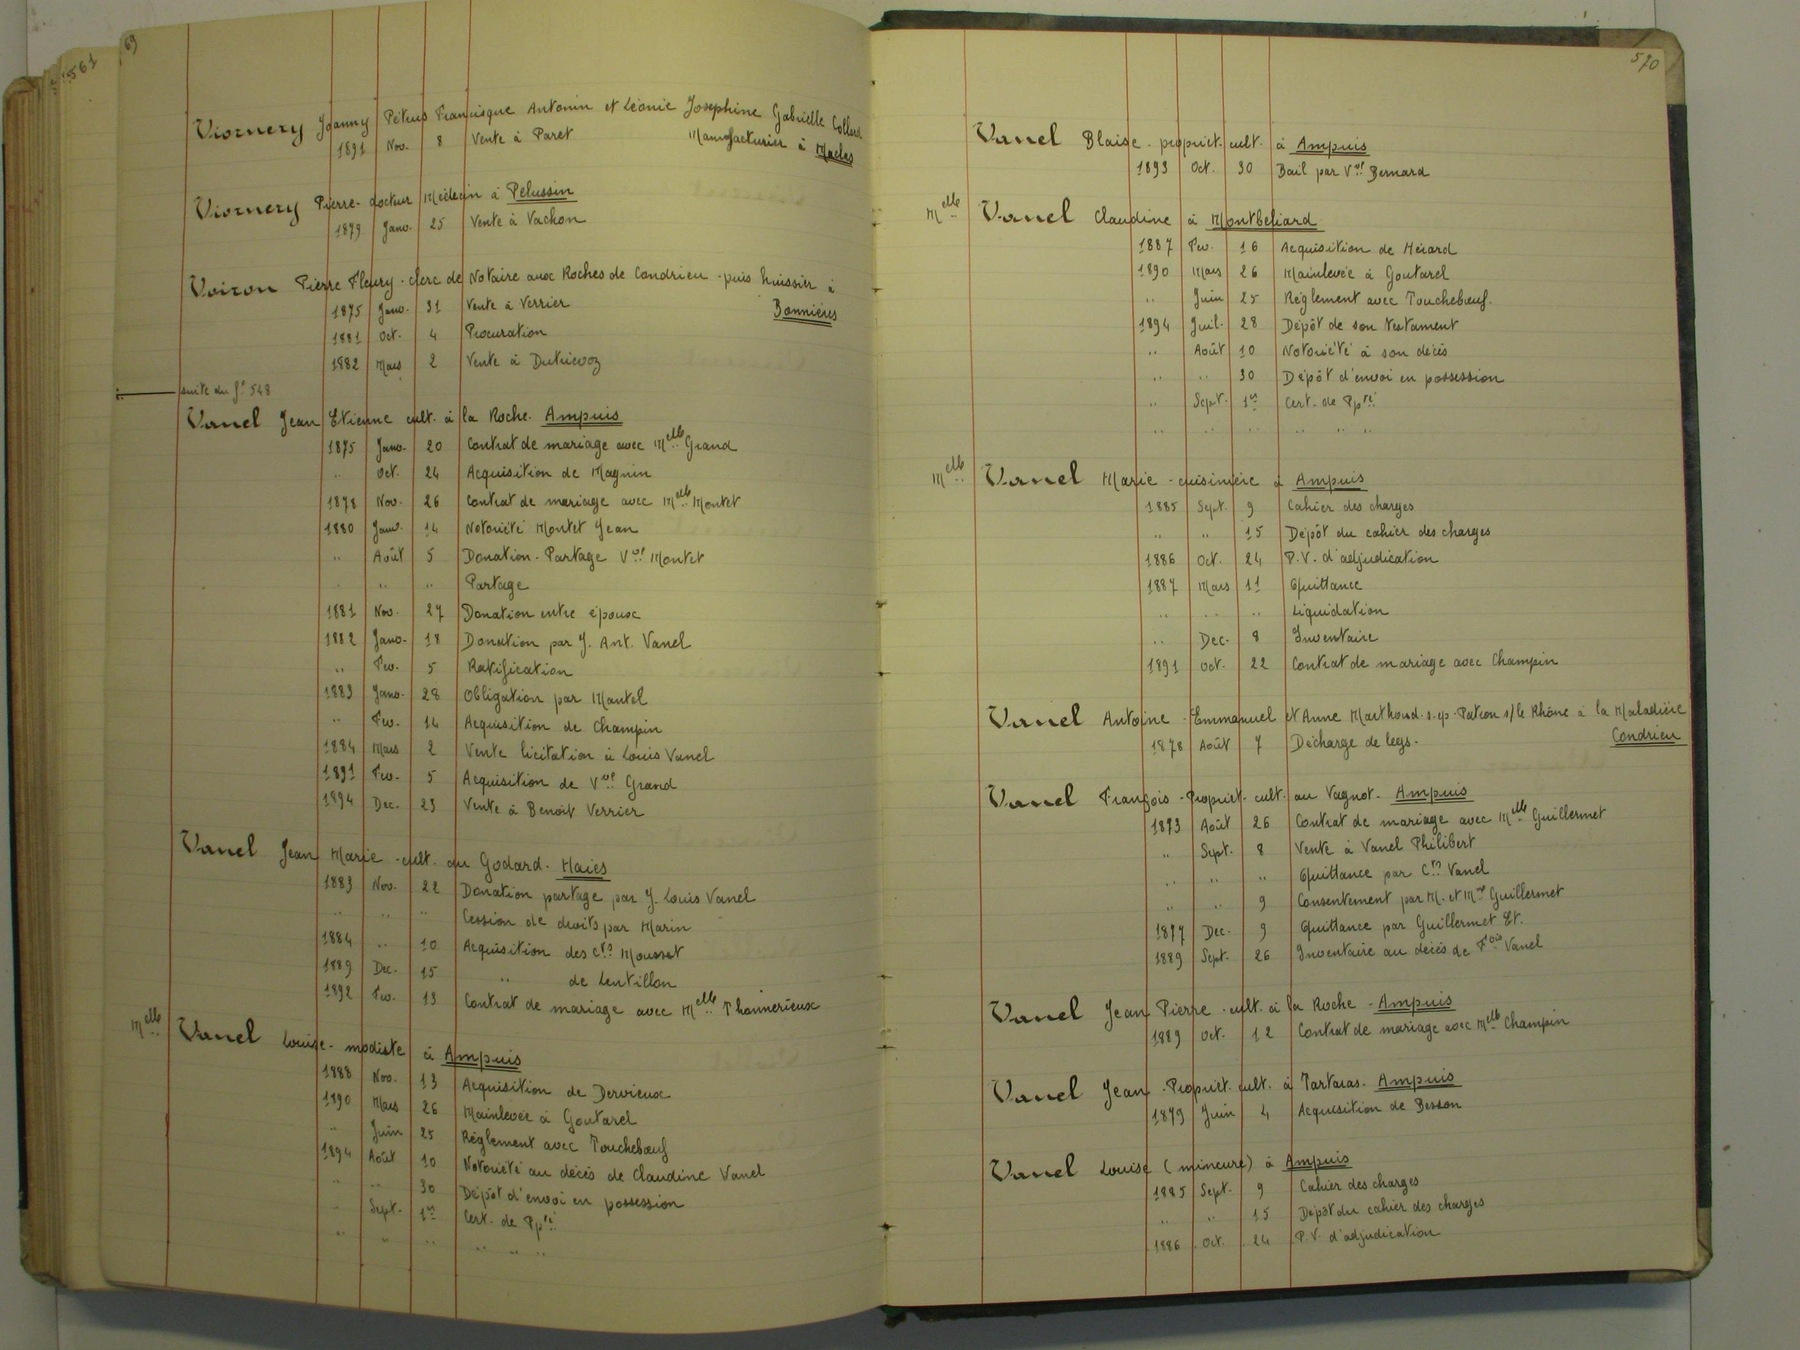 561
69
Viornery Joanny Pétrus Francisque Antonin et Léonie Josephine Gabrielle Collard
1891 Nov. 8 Vente à Paret Manufacturier à Maclas
Viornery Pierre - docteur Médecin à Pélussin
1879 Janv. 25 Vente à Vachon
Voiron Pierre Fleury - clerc de Notaire aux Roches de Condrieu - puis huissier à
1875 Janv. 31 Vente à Verrier Bonnières
1881 Oct. 4 Procuration
1882 Mars 2 Vente à Dutrievoz
suite du f° 548
Vanel Jean Etienne cult. à la Roche. Ampuis
1875 Janv. 20 Contrat de mariage avec Melle Grand
.. Oct. 24 Acquisition de Magnin
1878 Nov. 26 Contrat de mariage avec Melle Montet
1880 Janv. 14 Notoriété Montet Jean
.. Août 5 Donation - Partage Vve Montet
.. .. .. Partage
1881 Nov. 27 Donation entre époux
1882 Janv. 18 Donation par J. Ant. Vanel
.. Fev. 5 Ratification
1883 Janv. 28 Obligation par Mantel
.. Fev. 14 Acquisition de Champin
1884 Mars 2 Vente licitation à Louis Vanel
1891 Fev. 5 Acquisition de Vve Grand
1894 Dec. 23 Vente à Benoit Verrier
Vanel Jean Marie - cult. au Godard. Haies
1883 Nov. 22 Donation partage par J. Louis Vanel
.. .. .. Cession de droits par Marin
1884 .. 10 Acquisition des Cts Mousset
1889 Dec. 15 .. de Lentillon
1892 Fev. 13 Contrat de mariage avec Melle Thonnerieux
Melle Vanel Louise - modiste à Ampuis
1888 Nov. 13 Acquisition de Dervieux
1890 Mars 26 Mainlevée à Goutarel
.. Juin 25 Réglement avec Touchebœuf
1894 Août 10 Notoriété au décès de Claudine Vanel
.. .. 30 Dépôt d'envoi en possession
.. Sept. 1er Cert. de Ppté
.. .. .. .. .. ..
570
Vanel Blaise - propriét. cult. à Ampuis
1893 Oct. 30 Bail par Vve Bernard
Melle Vanel Claudine à Montbeliard
1887 Fev. 16 Acquisition de Mérard
1890 Mars 26 Mainlevée à Goutarel
.. Juin 25 Réglement avec Touchebœuf.
1894 Juil. 28 Dépôt de son testament
.. Août 10 Notoriété à son décès
.. .. 30 Dépôt d'envoi en possession
.. Sept. 1er Cert. de Ppté
.. .. .. .. .. ..
Melle Vanel Marie - cuisinière à Ampuis
1885 Sept. 9 Cahier des charges
.. .. 15 Dépôt du cahier des charges
1886 Oct. 24 P.V. d'adjudication
1887 Mars 11 Quittance
.. .. .. Liquidation
.. Dec. 8 Inventaire
1891 Oct. 22 Contrat de mariage avec Champin
Vanel Antoine - Emmanuel et Anne Marthoud. s. ép. Patron s/le Rhône à la Maladière
1878 Août 7 Décharge de legs. Condrieu
Vanel François - Propriét. cult. au Vagnot. Ampuis
1873 Août 26 Contrat de mariage avec Melle Guillermet
.. Sept. 8 Vente à Vanel Philibert
.. .. .. Quittance par Cts Vanel
.. .. 9 Consentement par M. et Me Guillermet
1877 Dec. 9 Quittance par Guillermet Et.
1889 Sept. 26 Inventaire au décès de Fois Vanel
Vanel Jean Pierre - cult. à la Roche - Ampuis
1889 Oct. 12 Contrat de mariage avec Melle Champin
Vanel Jean - Propriét. cult. à Tartaras. Ampuis
1879 Juin 4 Acquisition de Besson
Vanel Louise (mineure) à Ampuis
1885 Sept. 9 Cahier des charges
.. .. 15 Dépôt du cahier des charges
1886 Oct. 24 P.V. d'adjudication